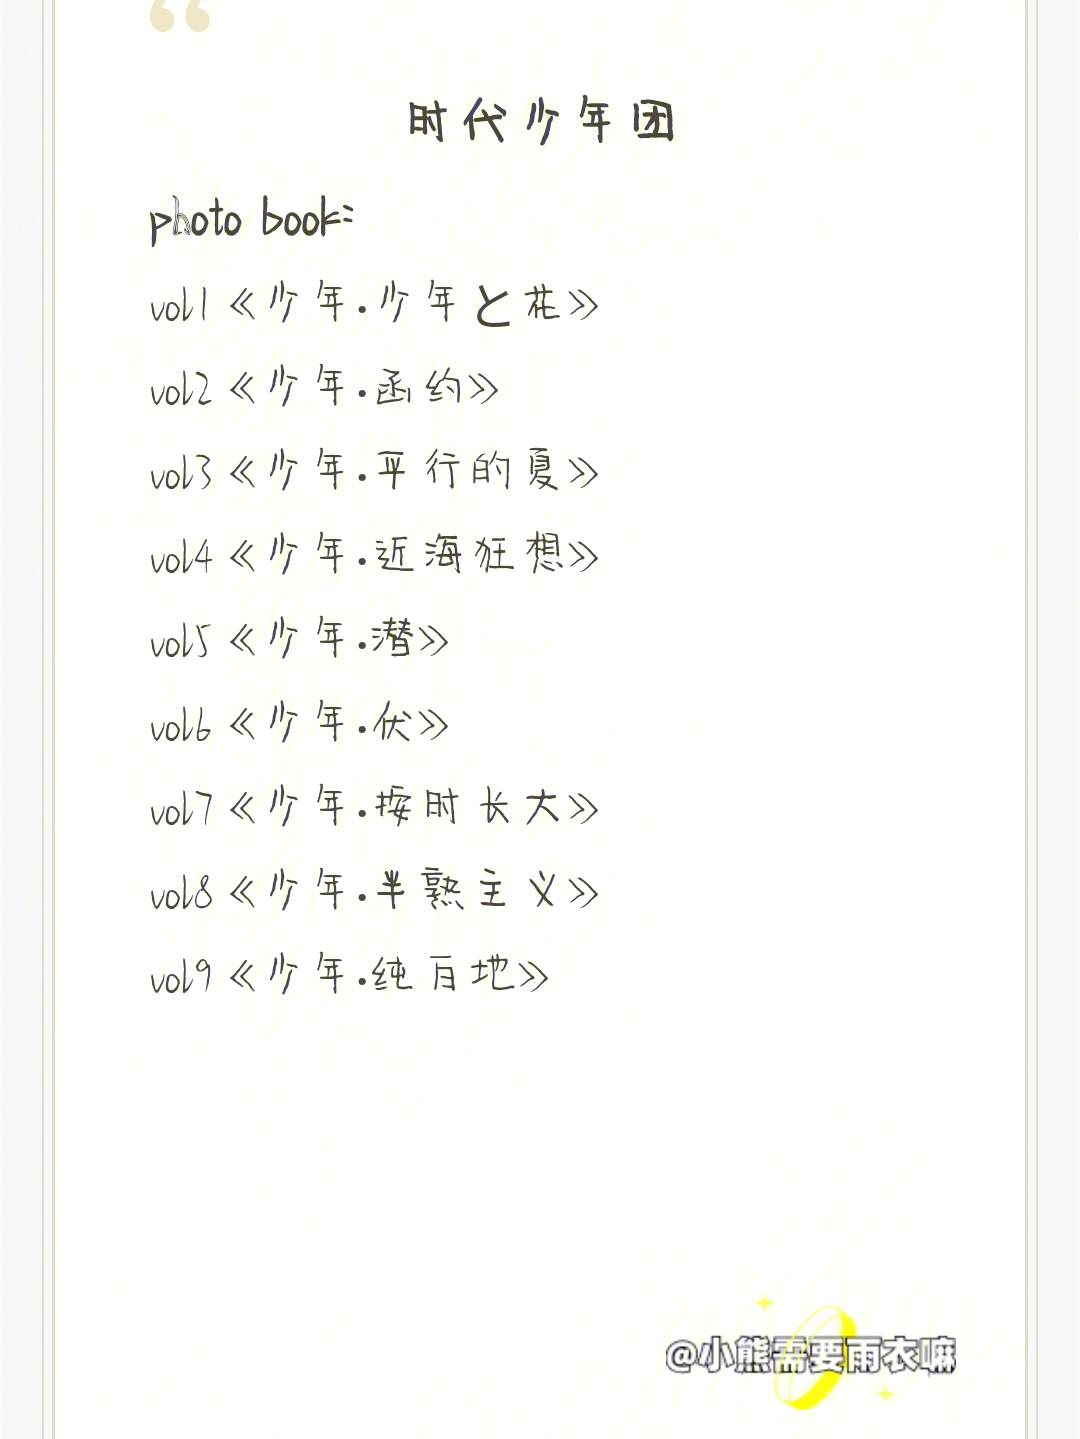 时代少年团
photo book:
vol1《少年.少年と花》
vol2《少年.函约》
vol3《少年.平行的夏》
vol4《少年.近海狂想》
vol5《少年.潜》
vol6《少年.伏》
vol7《少年.按时长大》
vol8《少年.半熟主义》
vol9《少年.纯白地》
@小熊需要雨衣嘛